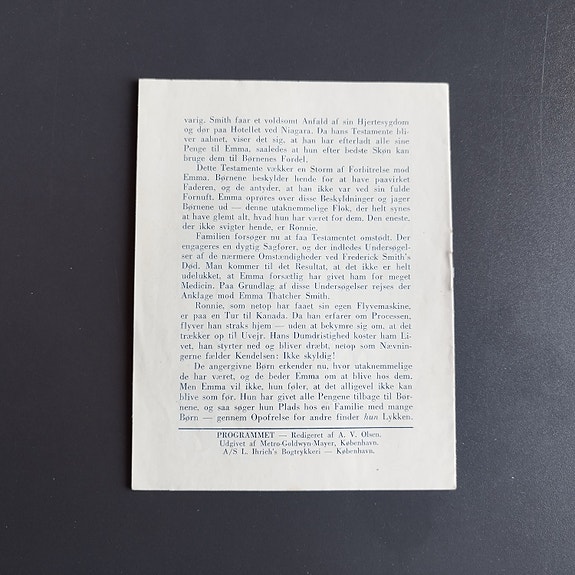 varig. Smith faar et voldsomt Anfald af sin Hjertesygdom
og dør paa Hotellet ved Niagara. Da hans Testamente bli-
ver aabnet, viser det sig, at han har efterladt alle sine
Penge til Emma, saaledes at hun efter bedste Skøn kan
bruge dem til Børnenes Fordel.
Dette Testamente vækker en Storm af Forbitrelse mod
Emma. Børnene beskylder hende for at have paavirket
Faderen, og de antyder, at han ikke var ved sin fulde
Fornuft. Emma oprøres over disse Beskyldninger og jager
Børnene ud — denne utaknemmelige Flok, der helt synes
at have glemt alt, hvad hun har været for dem. Den eneste,
der ikke svigter hende, er Ronnie.
Familien forsøger nu at faa Testamentet omstødt. Der
engageres en dygtig Sagfører, og der indledes Undersøgel-
ser af de nærmere Omstændigheder ved Frederick Smith's
Død. Man kommer til det Resultat, at det ikke er helt
udelukket, at Emma forsætlig har givet ham for meget
Medicin. Paa Grundlag af disse Undersøgelser rejses der
Anklage mod Emma Thatcher Smith.
Ronnie, som netop har faaet sin egen Flyvemaskine,
er paa en Tur til Kanada. Da han erfarer om Processen,
flyver han straks hjem — uden at bekymre sig om, at det
trækker op til Uvejr. Hans Dumdristighed koster ham Li-
vet, han styrter ned og bliver dræbt, netop som Nævnin-
gerne fælder Kendelsen: Ikke skyldig!
De angergivne Børn erkender nu, hvor utaknemmelige
de har været, og de beder Emma om at blive hos dem.
Men Emma vil ikke, hun føler, at det alligevel ikke kan
blive som før. Hun har givet alle Pengene tilbage til Bør-
nene, og saa søger hun Plads hos en Familie med mange
Børn — gennem Opofrelse for andre finder hun Lykken.
PROGRAMMET — Redigeret af A. V. Olsen.
Udgivet af Metro-Goldwyn-Mayer, København.
A/S L. Ihrich's Bogtrykkeri — København.